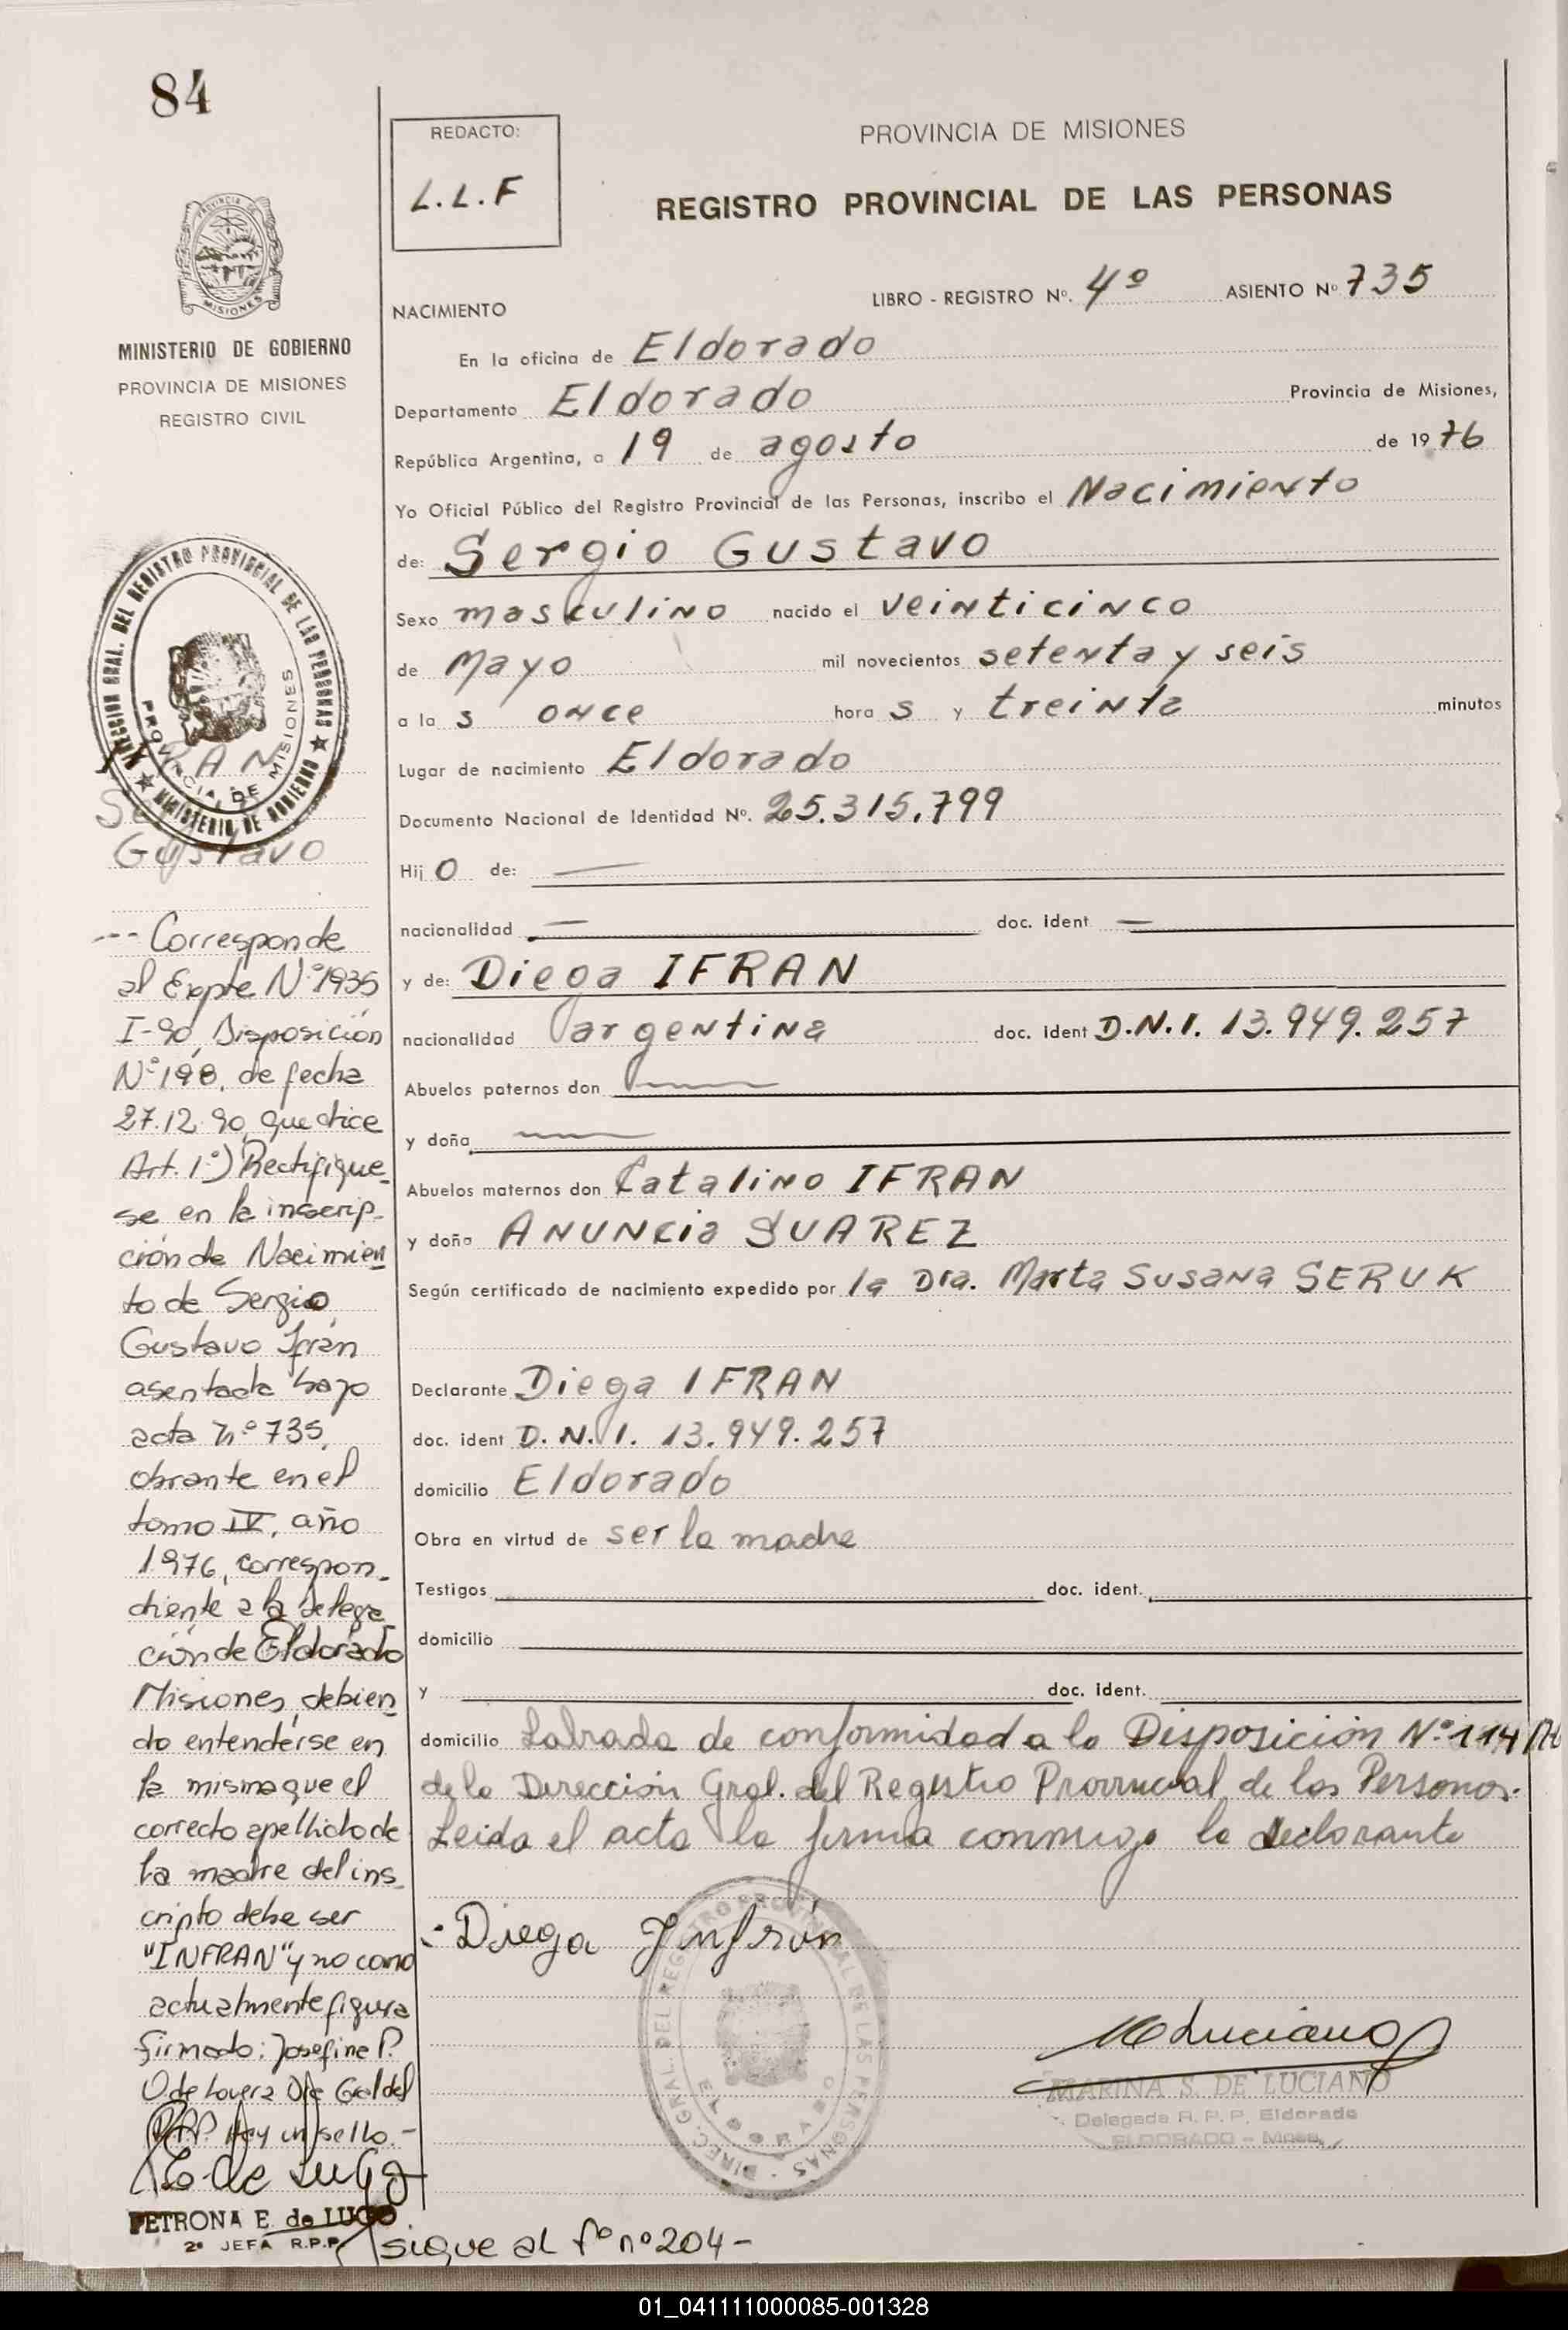 84
REDACTO:
L.L.F
PROVINCIA DE MISIONES
REGISTRO PROVINCIAL DE LAS PERSONAS
MINISTERIO DE GOBIERNO
PROVINCIA DE MISIONES
REGISTRO CIVIL
NACIMIENTO
LIBRO - REGISTRO Nº. 4º ASIENTO Nº 735
En la oficina de Eldorado
Departamento Eldorado Provincia de Misiones,
República Argentina, a 19 de agosto de 1976
Yo Oficial Público del Registro Provincial de las Personas, inscribo el Nacimiento
de: Sergio Gustavo
Sexo masculino nacido el veinticinco
de Mayo mil novecientos setenta y seis
a la s once hora s y treinta minutos
Lugar de nacimiento Eldorado
Documento Nacional de Identidad Nº. 25.315.799
Hij o de: —
nacionalidad — doc. ident —
y de: Diega IFRAN
nacionalidad argentina doc. ident D.N.I. 13.949.257
Abuelos paternos don
y doña
Abuelos maternos don Catalino IFRAN
y doña ANUNCia SUAREZ
Según certificado de nacimiento expedido por la Dra. Marta Susana SERUK
Declarante Diega IFRAN
doc. ident D.N.I. 13.949.257
domicilio Eldorado
Obra en virtud de ser la madre
Testigos doc. ident.
domicilio
y doc. ident.
domicilio Labrada de conformidad a la Disposición Nº 114
de la Dirección Gral. del Registro Provincial de las Personas.
Leida el acta la firma conmigo la declarante
Diega Infrán
MARINA S. DE LUCIANO
Delegada R. P. P. Eldorado
ELDORADO - Mnes.
DIREC. GRAL. DEL REGISTRO PROVINCIAL DE LAS PERSONAS
ELDORADO
DIRECCION GRAL. DEL REGISTRO PROVINCIAL DE LAS PERSONAS
MINISTERIO DE GOBIERNO
PROVINCIA DE MISIONES
Gustavo
--- Corresponde
al Expte Nº 1935
I-90, Disposición
Nº 198, de fecha
27.12.90, que dice
Art. 1º) Rectifique
se en la inscrip-
ción de Nacimien
to de Sergio
Gustavo Ifrán
asentada bajo
acta nº 735,
obrante en el
tomo IV, año
1976, correspon-
diente a la Delega
ción de Eldorado
Misiones, debien
do entenderse en
la misma que el
correcto apellido de
la madre del ins-
cripto debe ser
"INFRAN" y no como
actualmente figura
firmado: Josefine P.
O de Lovera Dra Gral del
R.P.P. Hay un sello.-
E. de Lugo
PETRONA E. de LUGO
2ª JEFA R.P.P.
sigue al fº nº 204 -
01_041111000085-001328